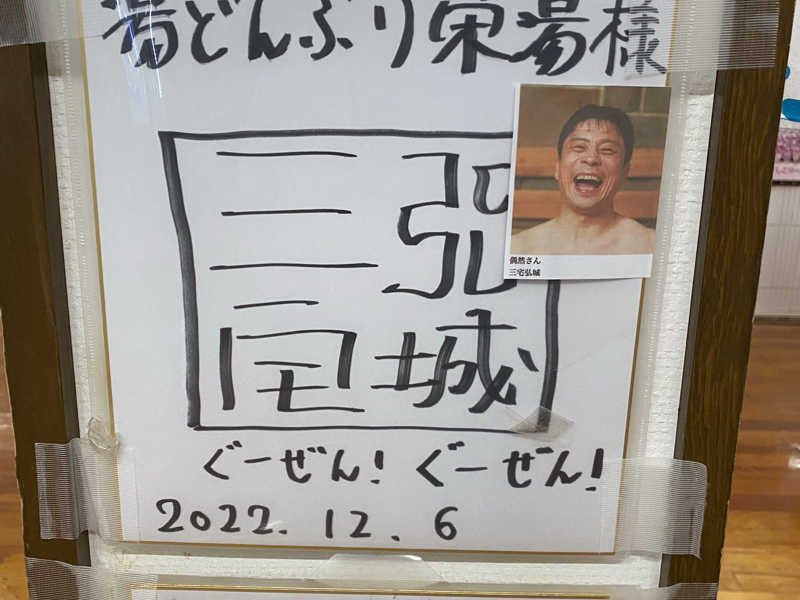 湯どんぶり栄湯様
三宅
弘城
偶然さん
三宅弘城
ぐーぜん！ぐーぜん！
2022.12.6